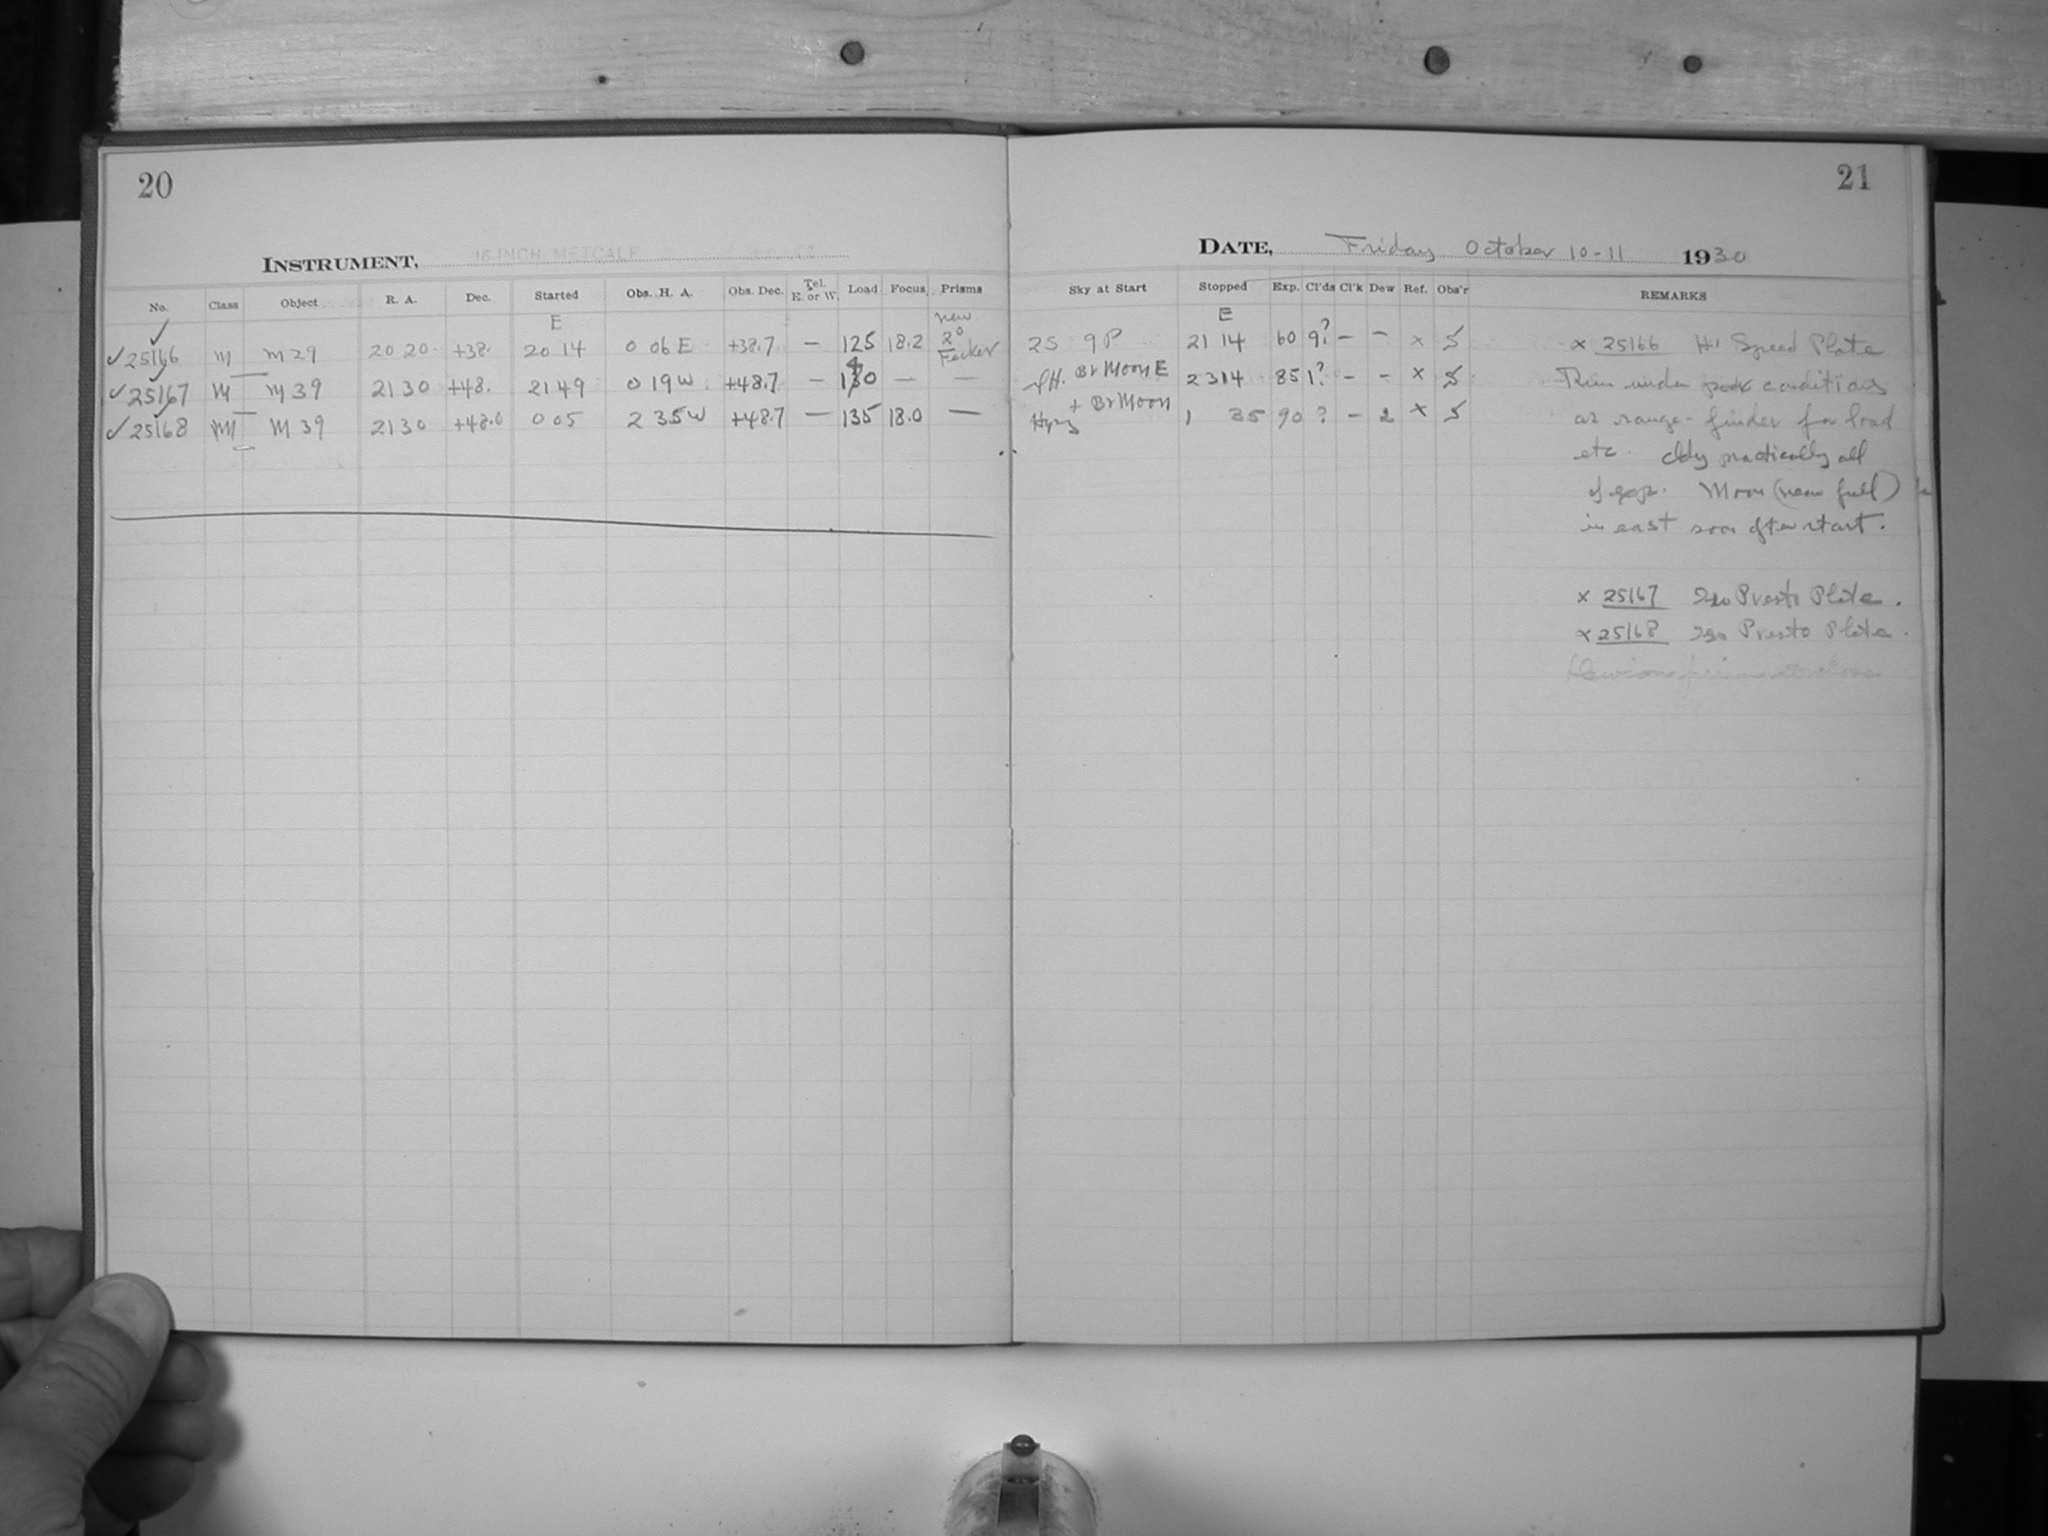 20
INSTRUMENT, 16 INCH METCALF
No. Class Object R. A. Dec. Started Obs. H. A. Obs. Dec. Tel. E. or W. Load Focus, Prisms
E new
✓25166 M M 29 20 20 +38. 20 14 0 06 E +38.7 — 125 18.2 2° Fecker
✓25167 M M 39 21 30 +48. 21 49 0 19 W +48.7 — 130 — —
✓25168 M M 39 21 30 +48.0 0 05 2 35 W +48.7 — 135 18.0 —
21
DATE, Friday October 10-11 1930
Sky at Start Stopped Exp. Cl'ds Cl'k Dew Ref. Obs'r REMARKS
E
2S 9P 21 14 60 9? — — x S x 25166 Hi Speed Plate
SH. Br Moon E 23 14 85 1? — — x S Thin under poor conditions
Hzy + Br Moon 1 35 90 ? — 2 x S as range-finder for load
etc. cldy practically all
of exp. Moon (near full)
in east soon after start.
x 25167 Iso Presto Plate.
x 25168 Iso Presto Plate.
Dew on prism at close